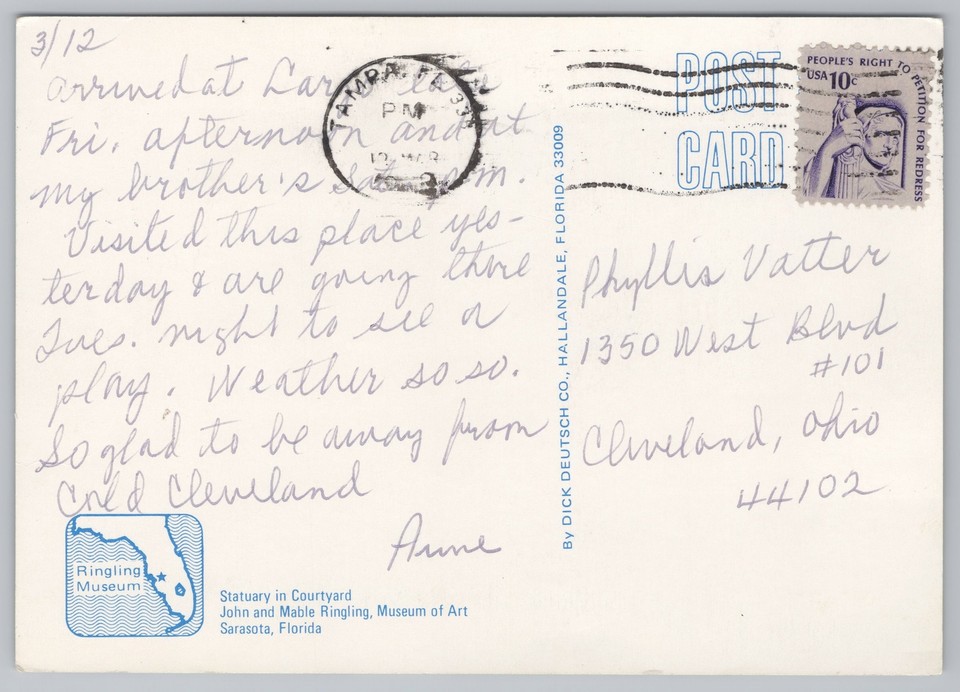 3/12
arrived at
Fri. afternoon and at
my brother's Sat. p.m.
Visited this place yes-
terday & are going there
Tues. night to see a
play. Weather so so.
So glad to be away from
Cold Cleveland
Anne
Ringling
Museum
Statuary in Courtyard
John and Mable Ringling, Museum of Art
Sarasota, Florida
TAMPA, FL
PM
12 MAR
By DICK DEUTSCH CO., HALLANDALE, FLORIDA 33009
POST
CARD
PEOPLE'S RIGHT TO PETITION FOR REDRESS
USA 10c
Phyllis Vatter
1350 West Blvd
#101
Cleveland, Ohio
44102